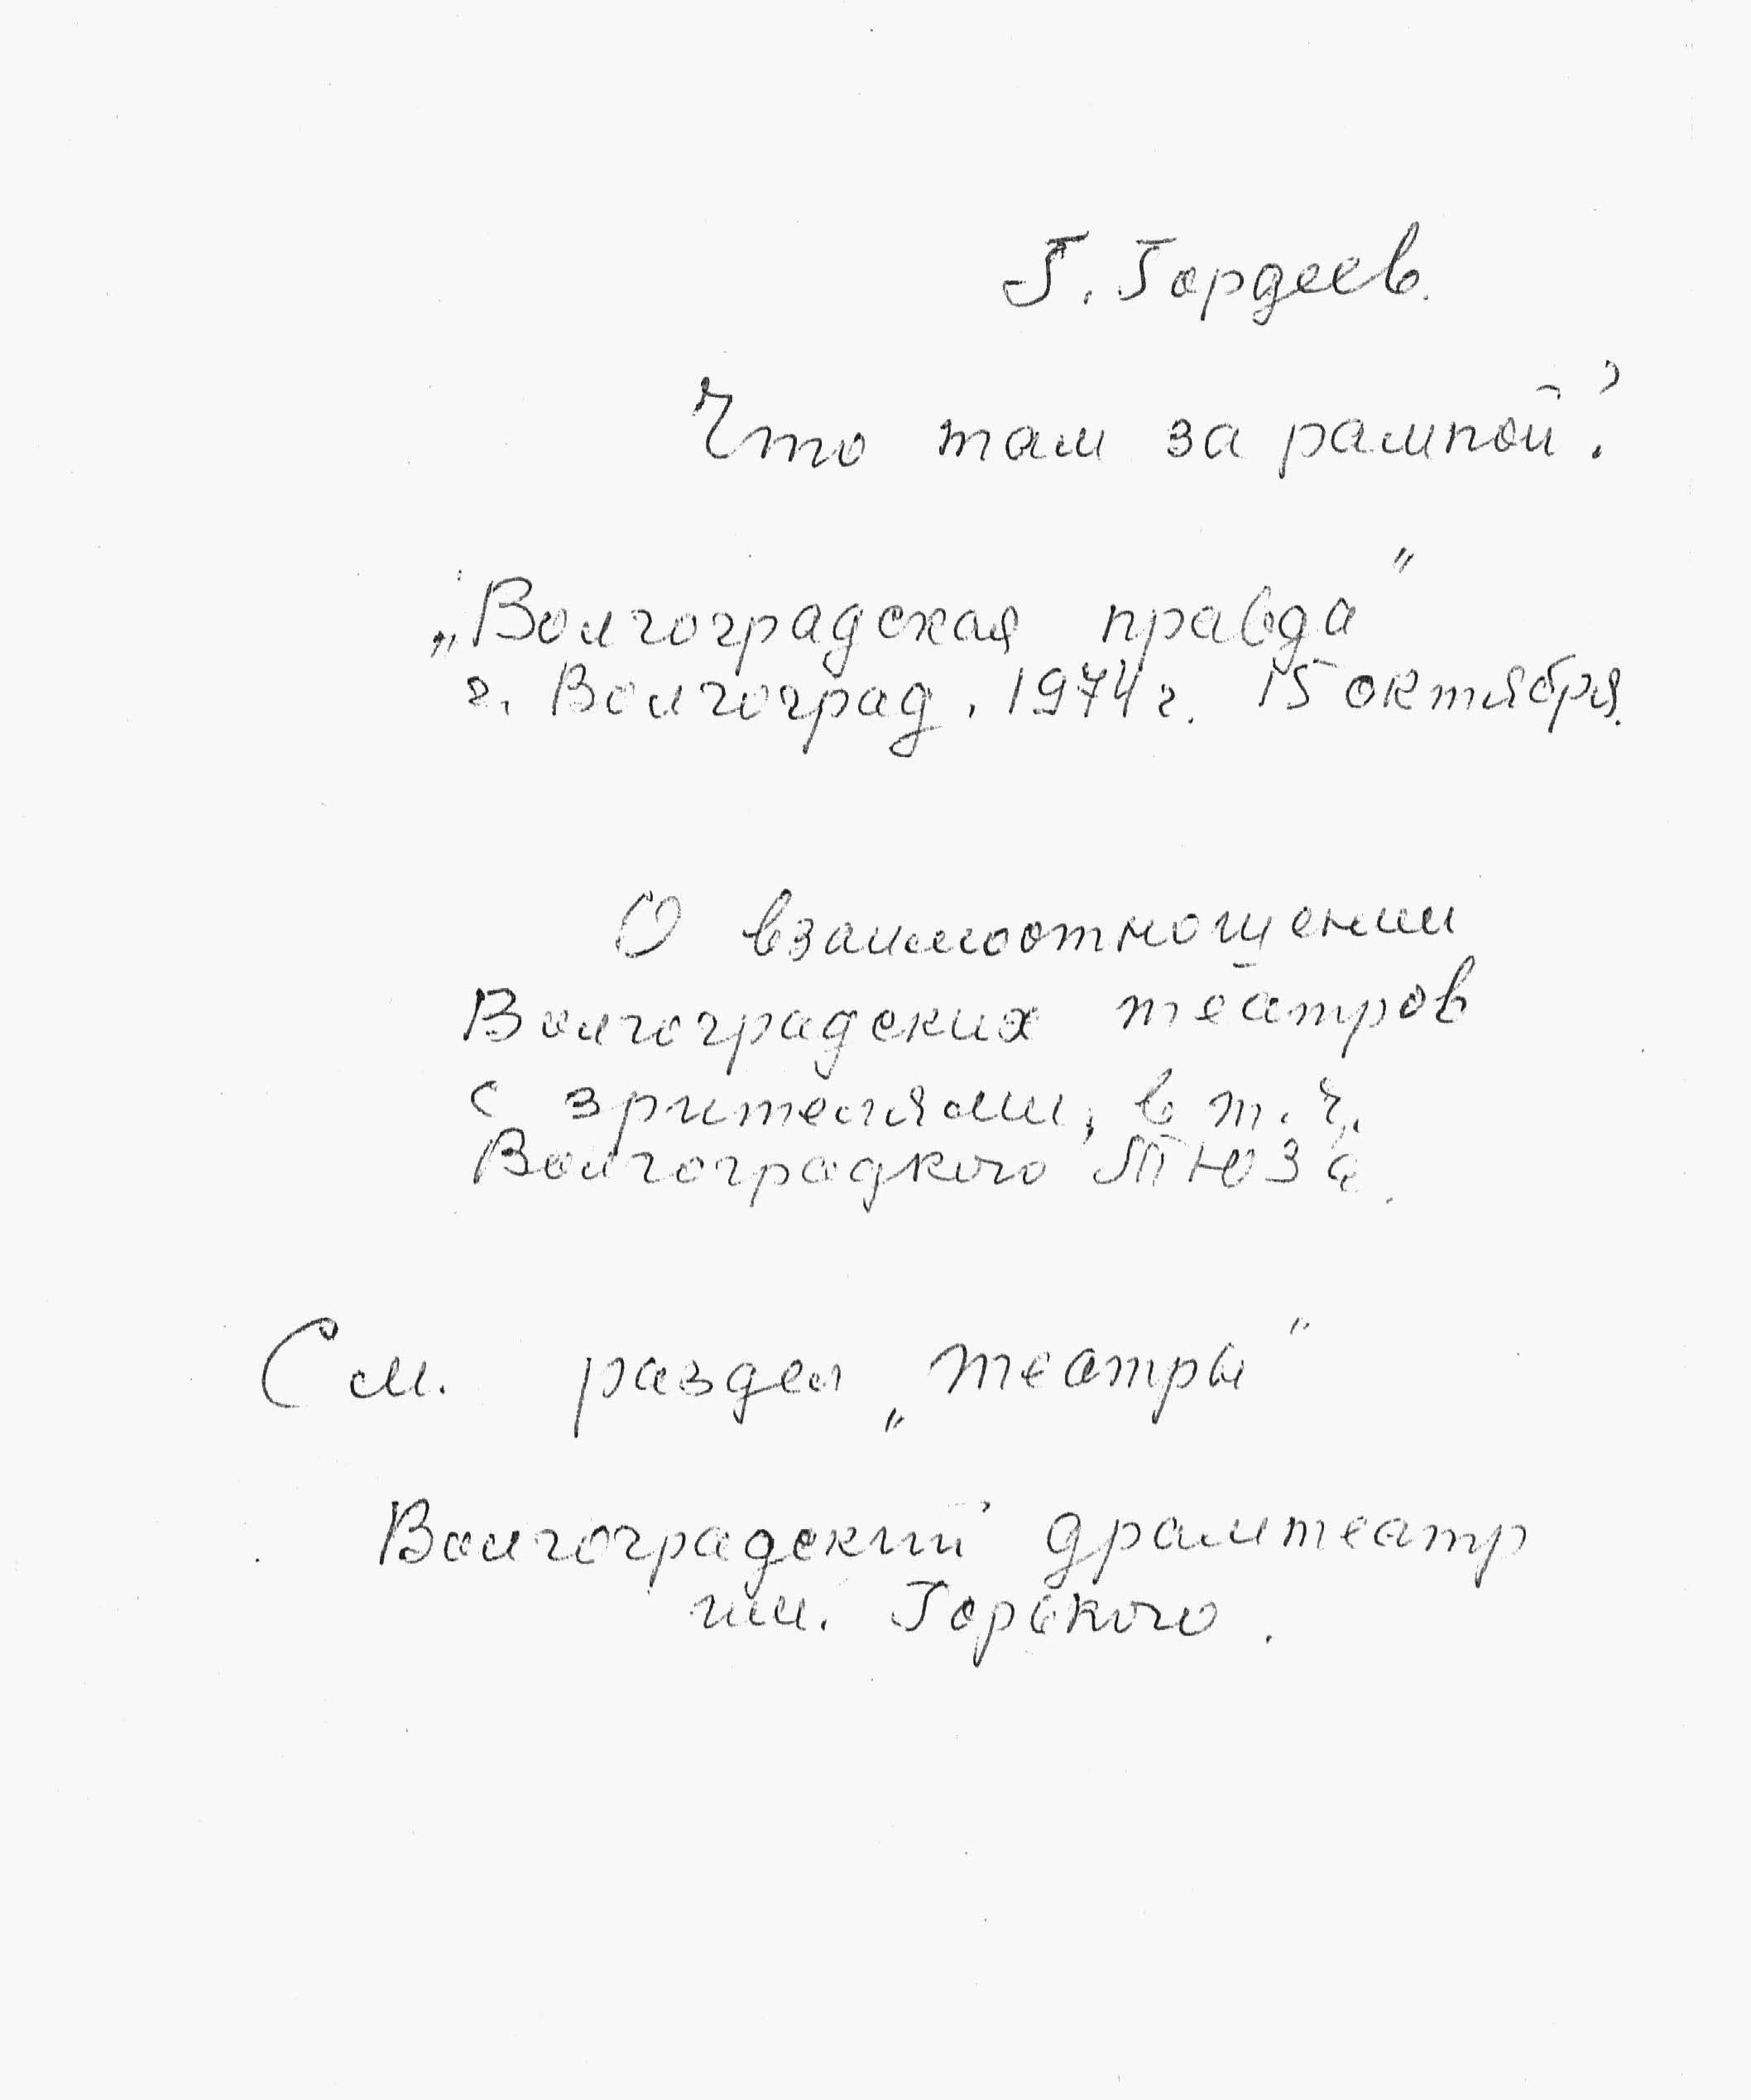 Г. Гордеев.
Что там за рампой?
„Волгоградская правда"
г. Волгоград. 1974 г. 15 октября.
О взаимоотношении
Волгоградских театров
с зрителями, в т. ч.
Волгоградкого ТЮЗа.
См. раздел „Театры"
Волгоградский драмтеатр
им. Горького.